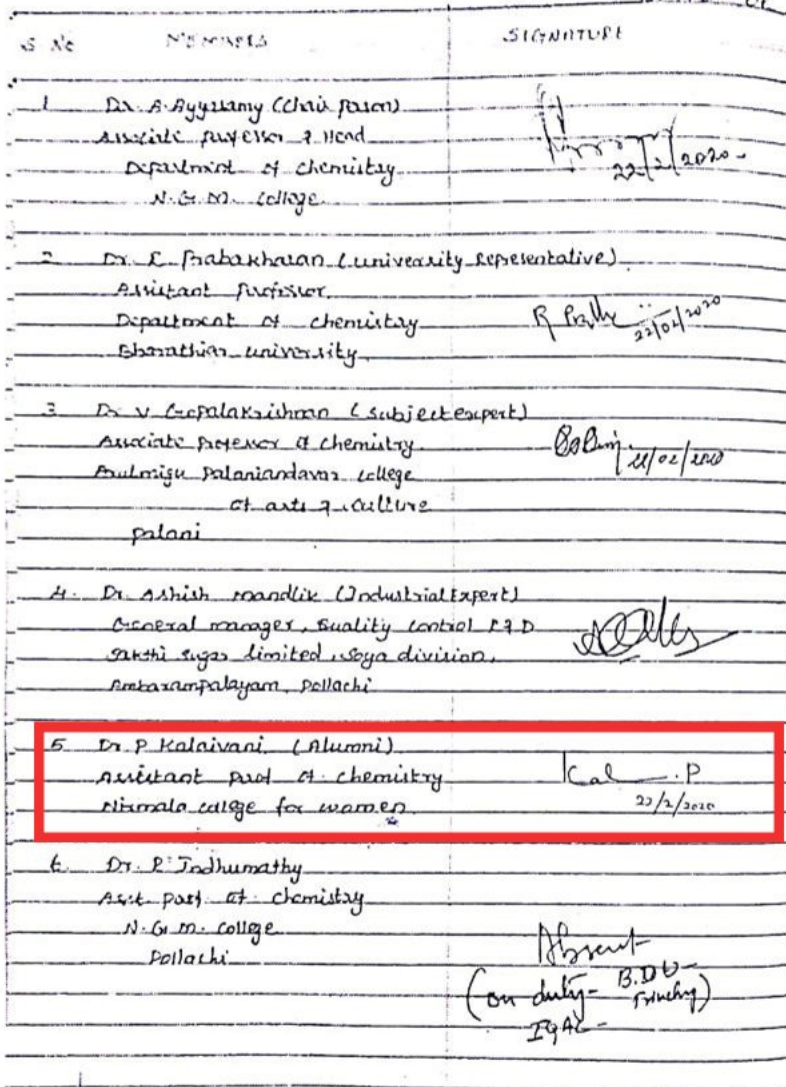 S. No MEMBERS SIGNATURE
1 Dr. A. Ayyusamy (Chair Person)
Associate professor & Head
Department of chemistry
N. G. M. college
22/2/2020
2 Dr. R. Prabakharan (university representative)
Assistant Professor
Department of chemistry
Bharathiar university
22/02/2020
3 Dr V Gopalakrishnan (subject expert)
Associate professor of chemistry
Arulmigu Palaniandavar college
of arts & culture
palani
22/02/2020
4. Dr. Ashish mandlik (Industrial Expert)
General manager, Quality control R & D
Sakthi sugar limited, soya division,
Ambarampalayam, Pollachi
5 Dr. P Kalaivani (Alumni)
Assistant prof of chemistry Kal .P
Nirmala college for women 22/2/2020
6. Dr. R Indhumathy
Asst. prof of chemistry
N. G. m. college
Pollachi
Absent
(on duty - B.D.U - Trinchy)
IQAC -